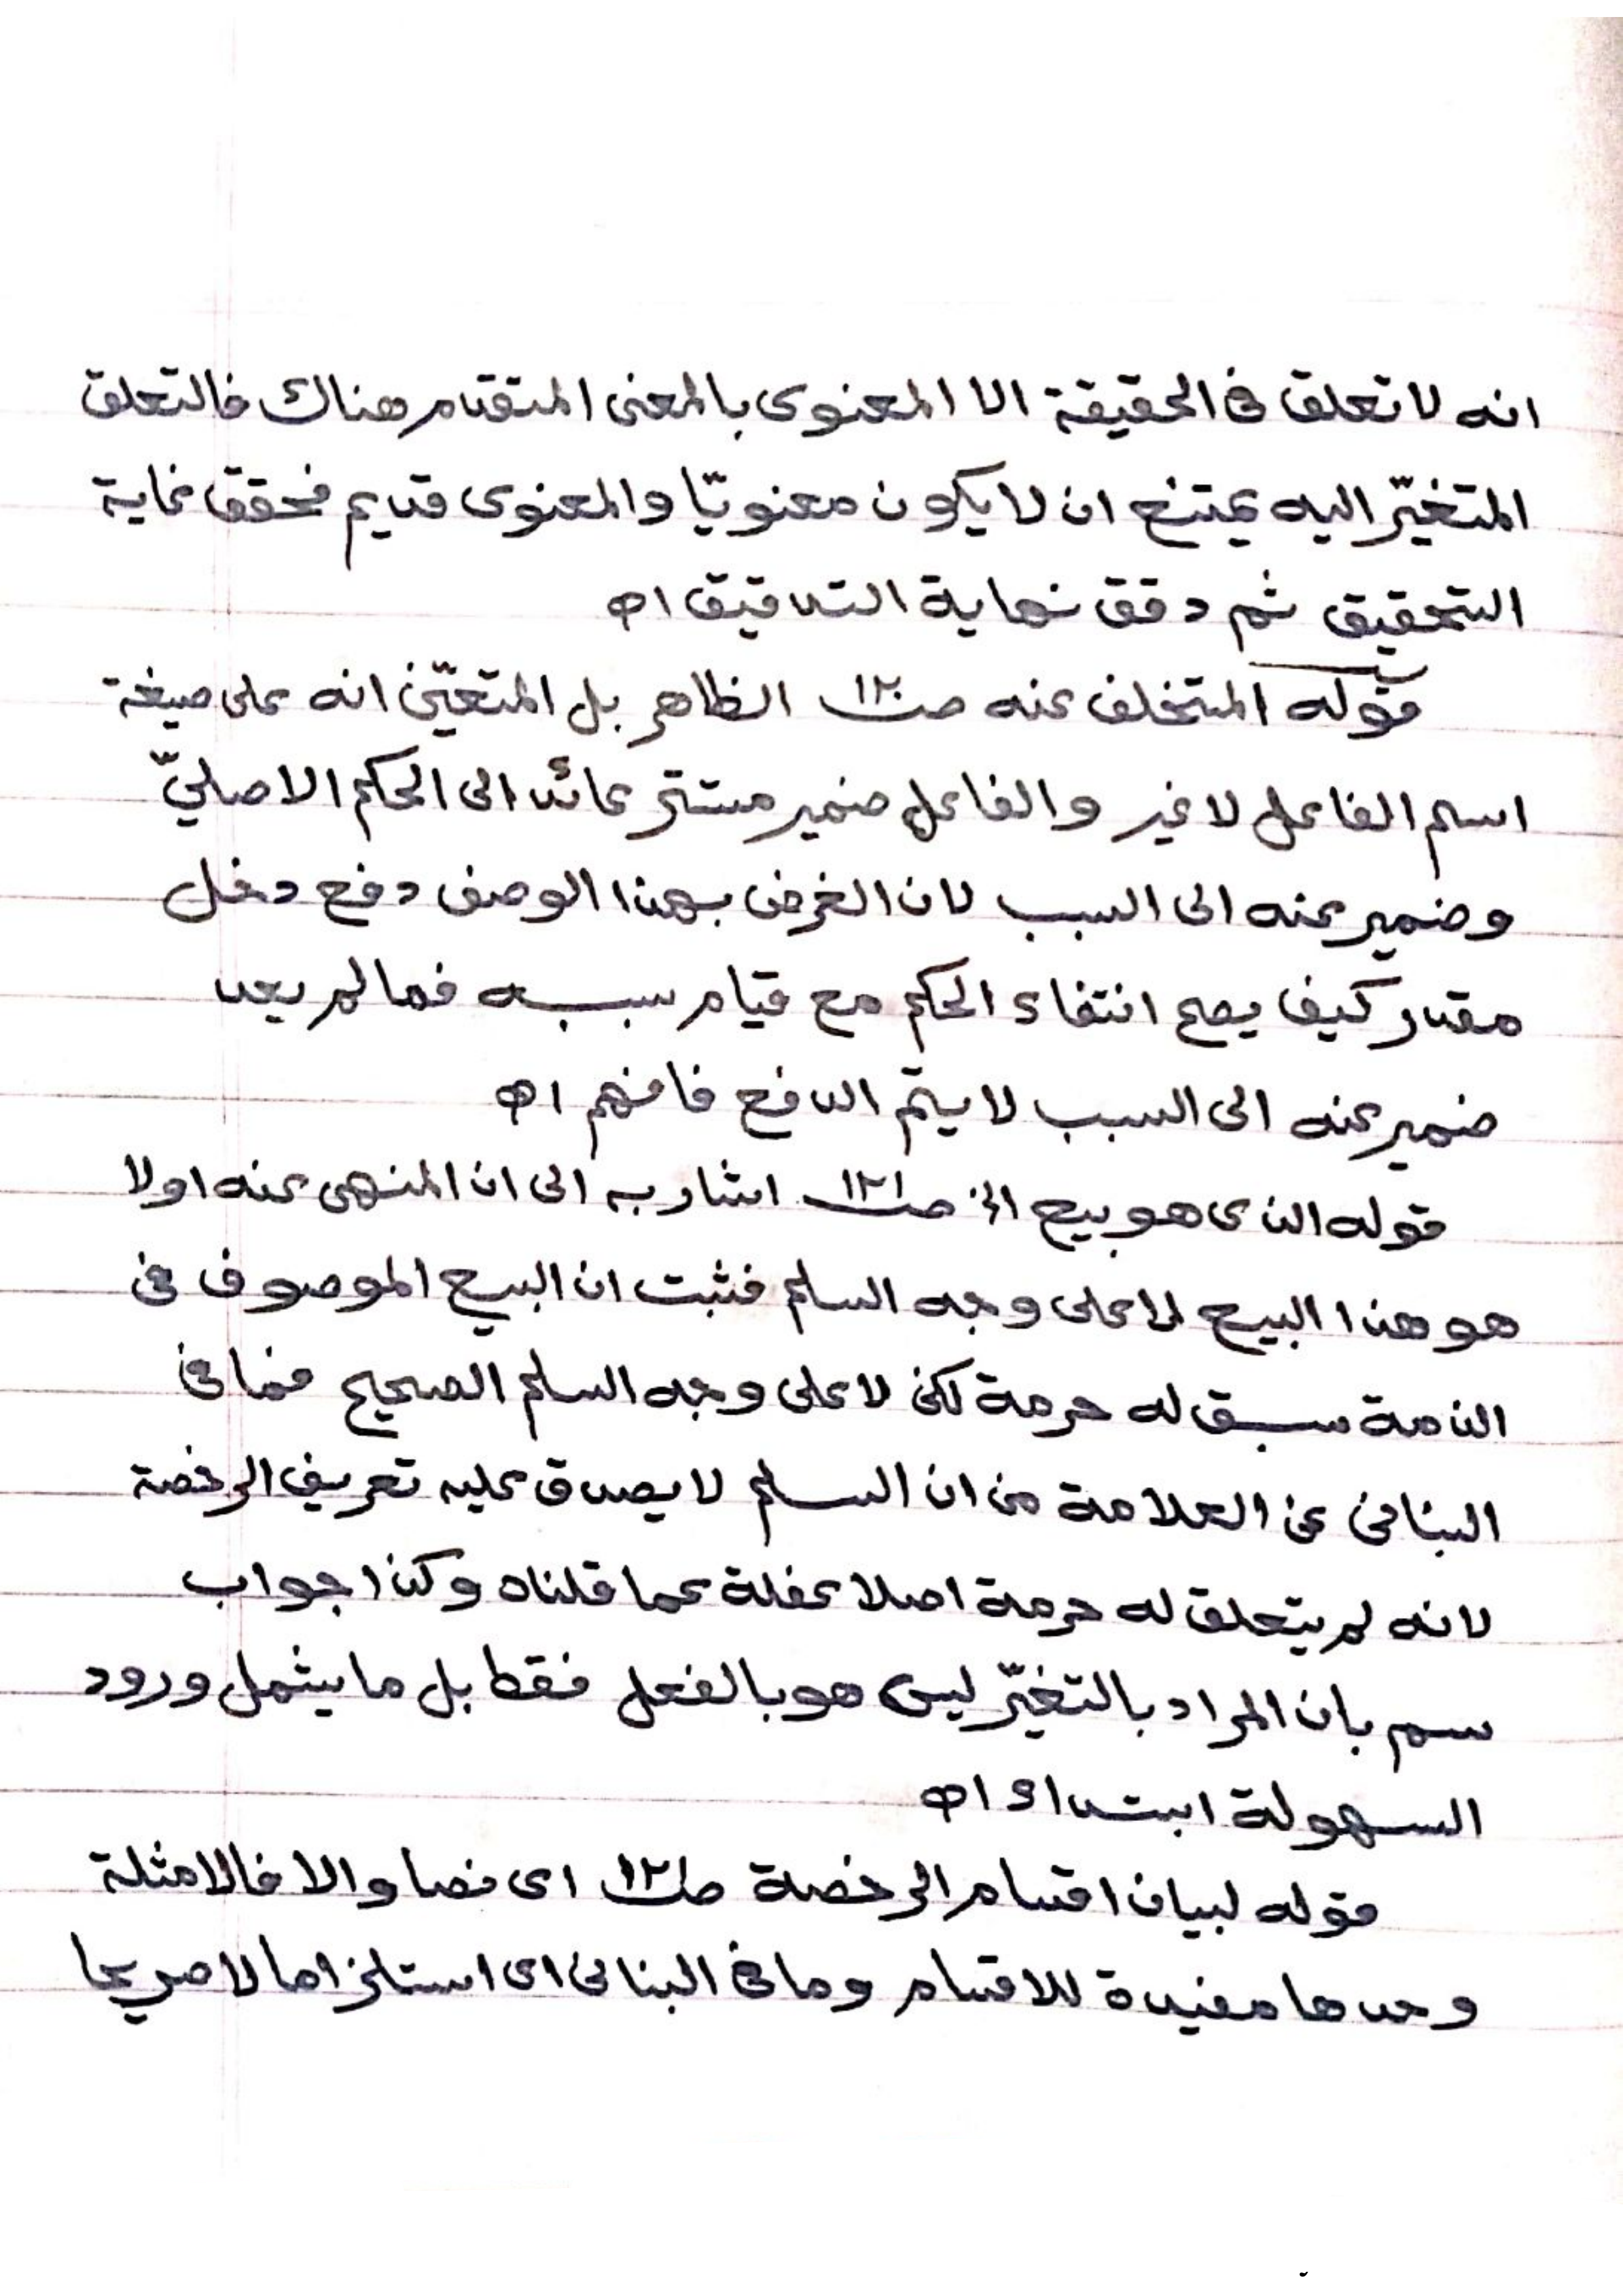 انه لا تعلق فى الحقيقة الا المعنوى بالمعنى المتقدم هناك فالتعلق
المتغيّر اليه يمتنع ان لا يكون معنويّا والمعنوى قديم فحقق غاية
التحقيق ثم دقق نهاية التدقيق اه
قوله المتخلف عنه صـ١٢٠ الظاهر بل المتعيّن انه على صيغة
اسم الفاعل لا غير والفاعل ضمير مستتر عائد الى الحكم الاصليّ
وضمير عنه الى السبب لان الغرض بهذا الوصف دفع دخل
مقدر كيف يصح انتفاء الحكم مع قيام سببه فما لم يعد
ضمير عنه الى السبب لا يتمّ الدفع فافهم اه
قوله الذى هو بيع الخ صـ١٢١ اشار به الى ان المنهى عنه اولا
هو هذا البيع لا على وجه السلم فثبت ان البيع الموصوف فى
الذمة سبق له حرمة لكن لا على وجه السلم الصحيح فما فى
البنانى عن العلامة من ان السلم لا يصدق عليه تعريف الرخصة
لانه لم يتعلق له حرمة اصلا غفلة عما قلناه وكذا جواب
سم بان المراد بالتغيّر ليس هو بالفعل فقط بل ما يشمل ورود
السهولة ابتداء اه
قوله لبيان اقسام الرخصة صـ١٢١ اى نصا والا فالامثلة
وحدها مفيدة للاقسام وما فى البنانى اى استلزاما لا صريحا